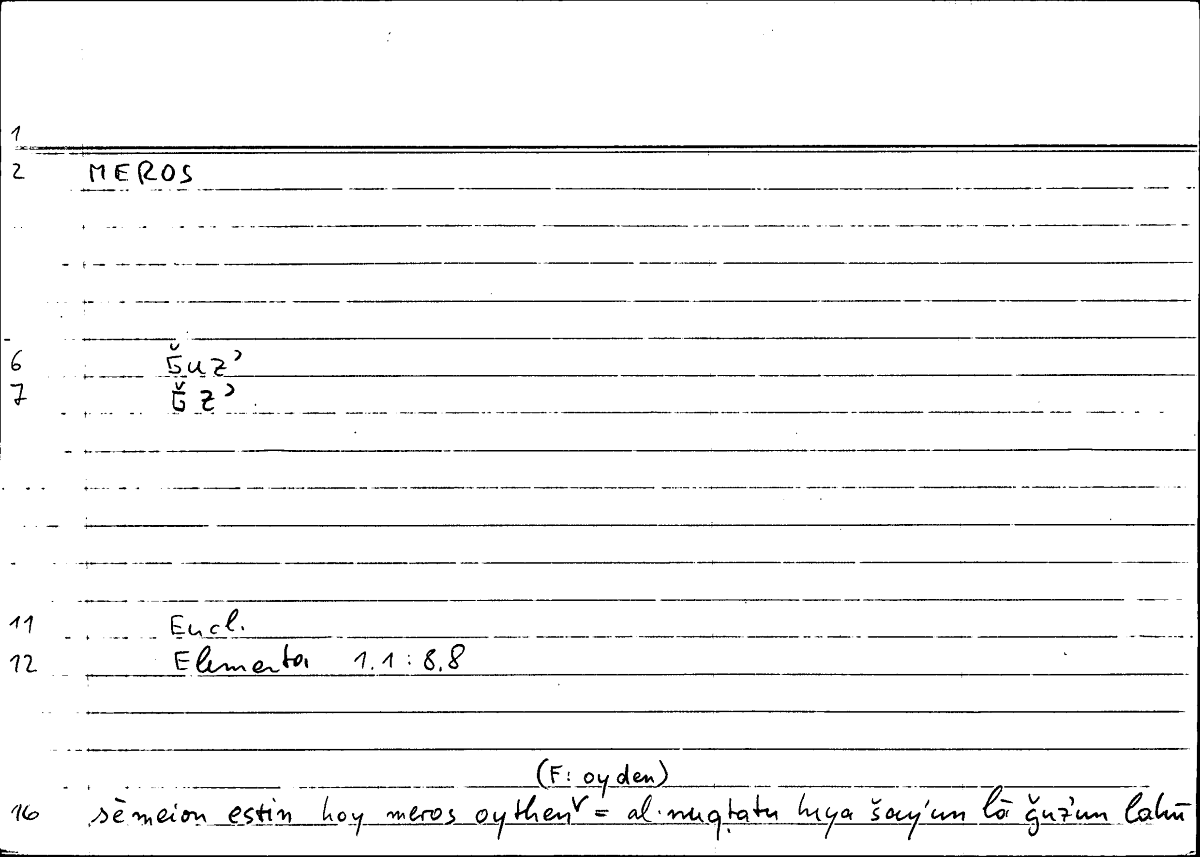 1
2 MEROS
6 Ǧuzʾ
7 Ǧzʾ
11 Eucl.
12 Elementa 1.1 : 8.8
(F: oyden)
16 sēmeion estin hoy meros oythen = al-nuqṭatu hiya šayʾun lā ǧuzʾun lahū